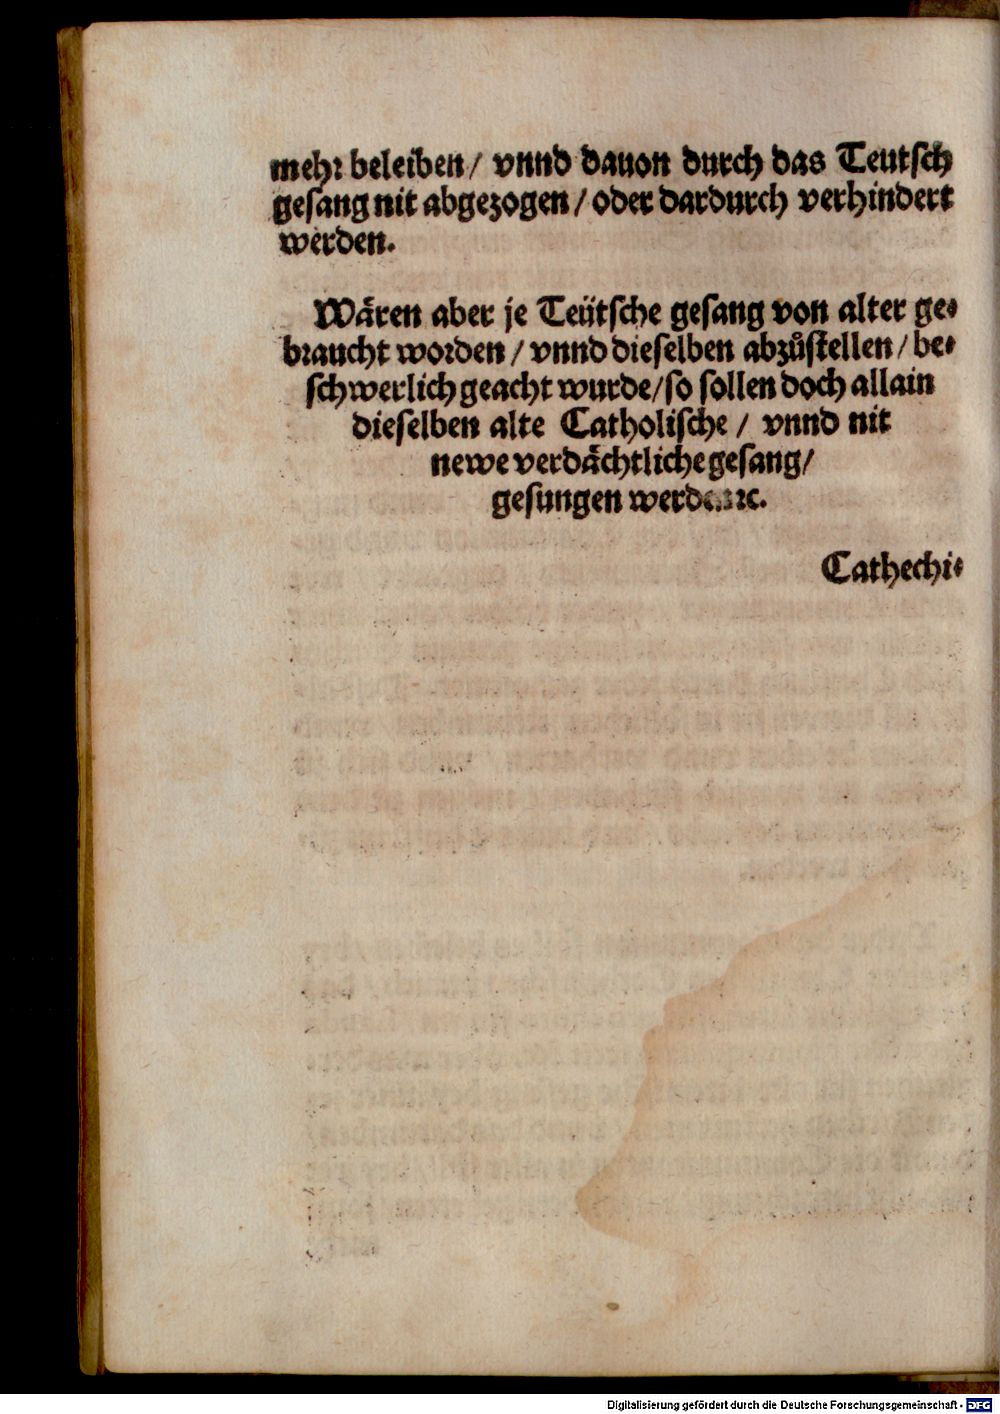 mehr beleiben / vnnd dauon durch das Teutsch
gesang nit abgezogen / oder dardurch verhindert
werden.
Wären aber je Teütsche gesang von alter ge-
braucht worden / vnnd dieselben abzůstellen / be-
schwerlich geacht wurde / so sollen doch allain
dieselben alte Catholische / vnnd nit
newe verdächtliche gesang /
gesungen werden ꝛc.
Cathechi-
Digitalisierung gefördert durch die Deutsche Forschungsgemeinschaft - DFG